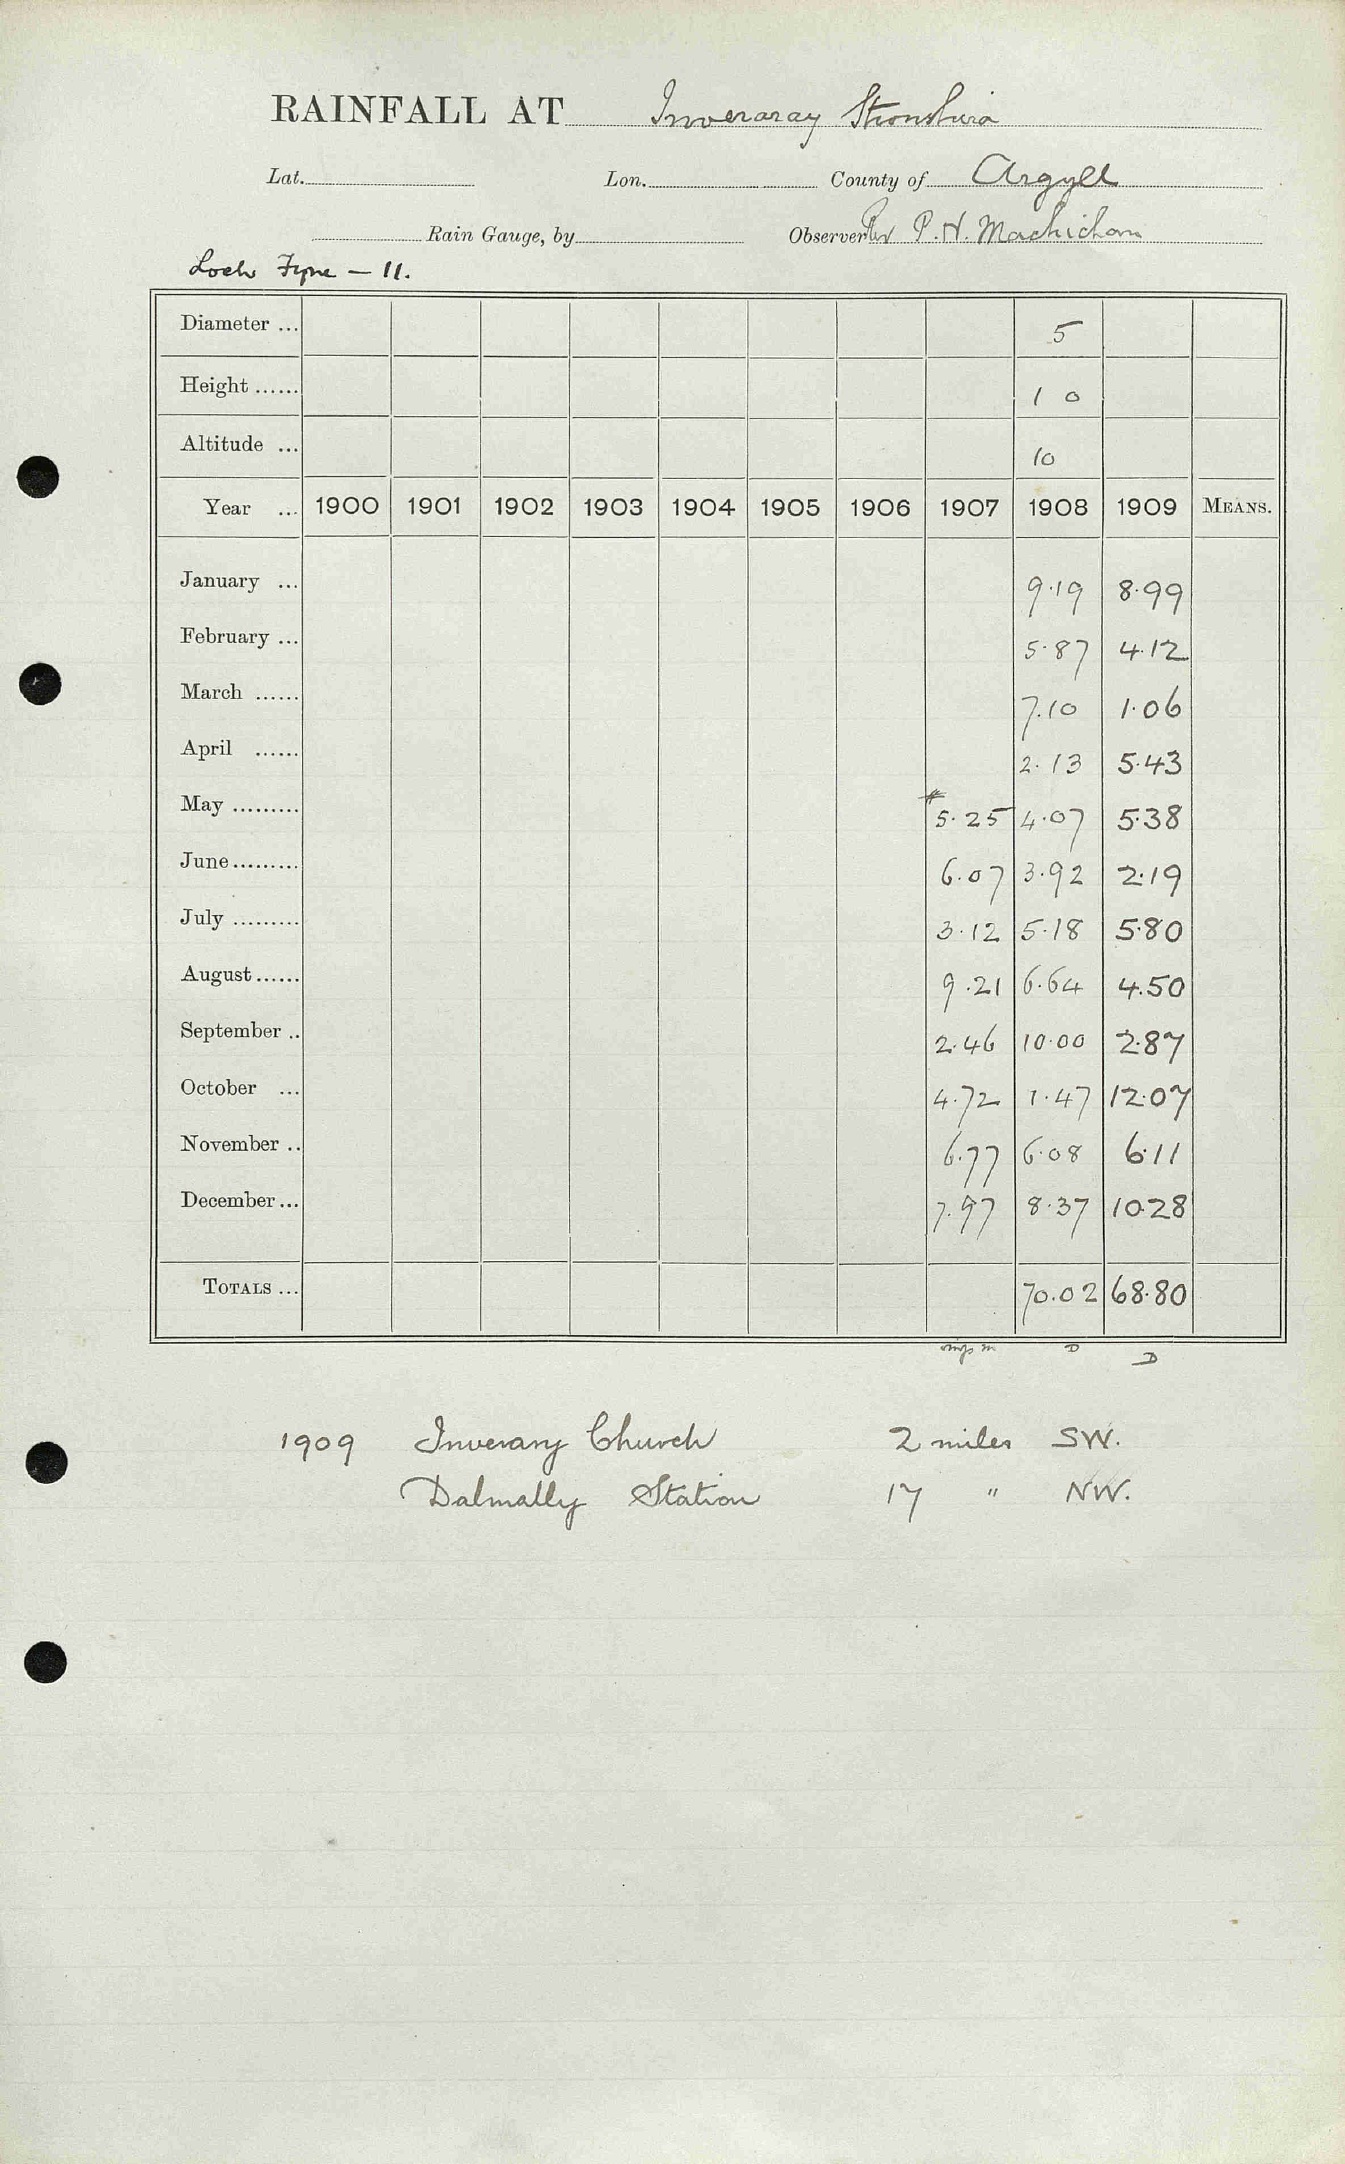 RAINFALL AT Inveraray Stronshira
Lat. Lon. County of Argyll
Rain Gauge, by Observer Rev P. H.
Loch Fyne — 11.
Diameter ... 5
Height ...... 1 0
Altitude ... 10
Year ... 1900 1901 1902 1903 1904 1905 1906 1907 1908 1909 MEANS.
January ... 9.19 8.99
February ... 5.87 4.12
March ...... 7.10 1.06
April ...... 2.13 5.43
May ......... *5.25 4.07 5.38
June ......... 6.07 3.92 2.19
July ......... 3.12 5.18 5.80
August ...... 9.21 6.64 4.50
September .. 2.46 10.00 2.87
October ... 4.72 1.47 12.07
November .. 6.77 6.08 6.11
December ... 7.97 8.37 10.28
TOTALS ... 70.02 68.80
D D
1909 Inverary Church 2 miles SW.
Dalmally Station 17 " NW.